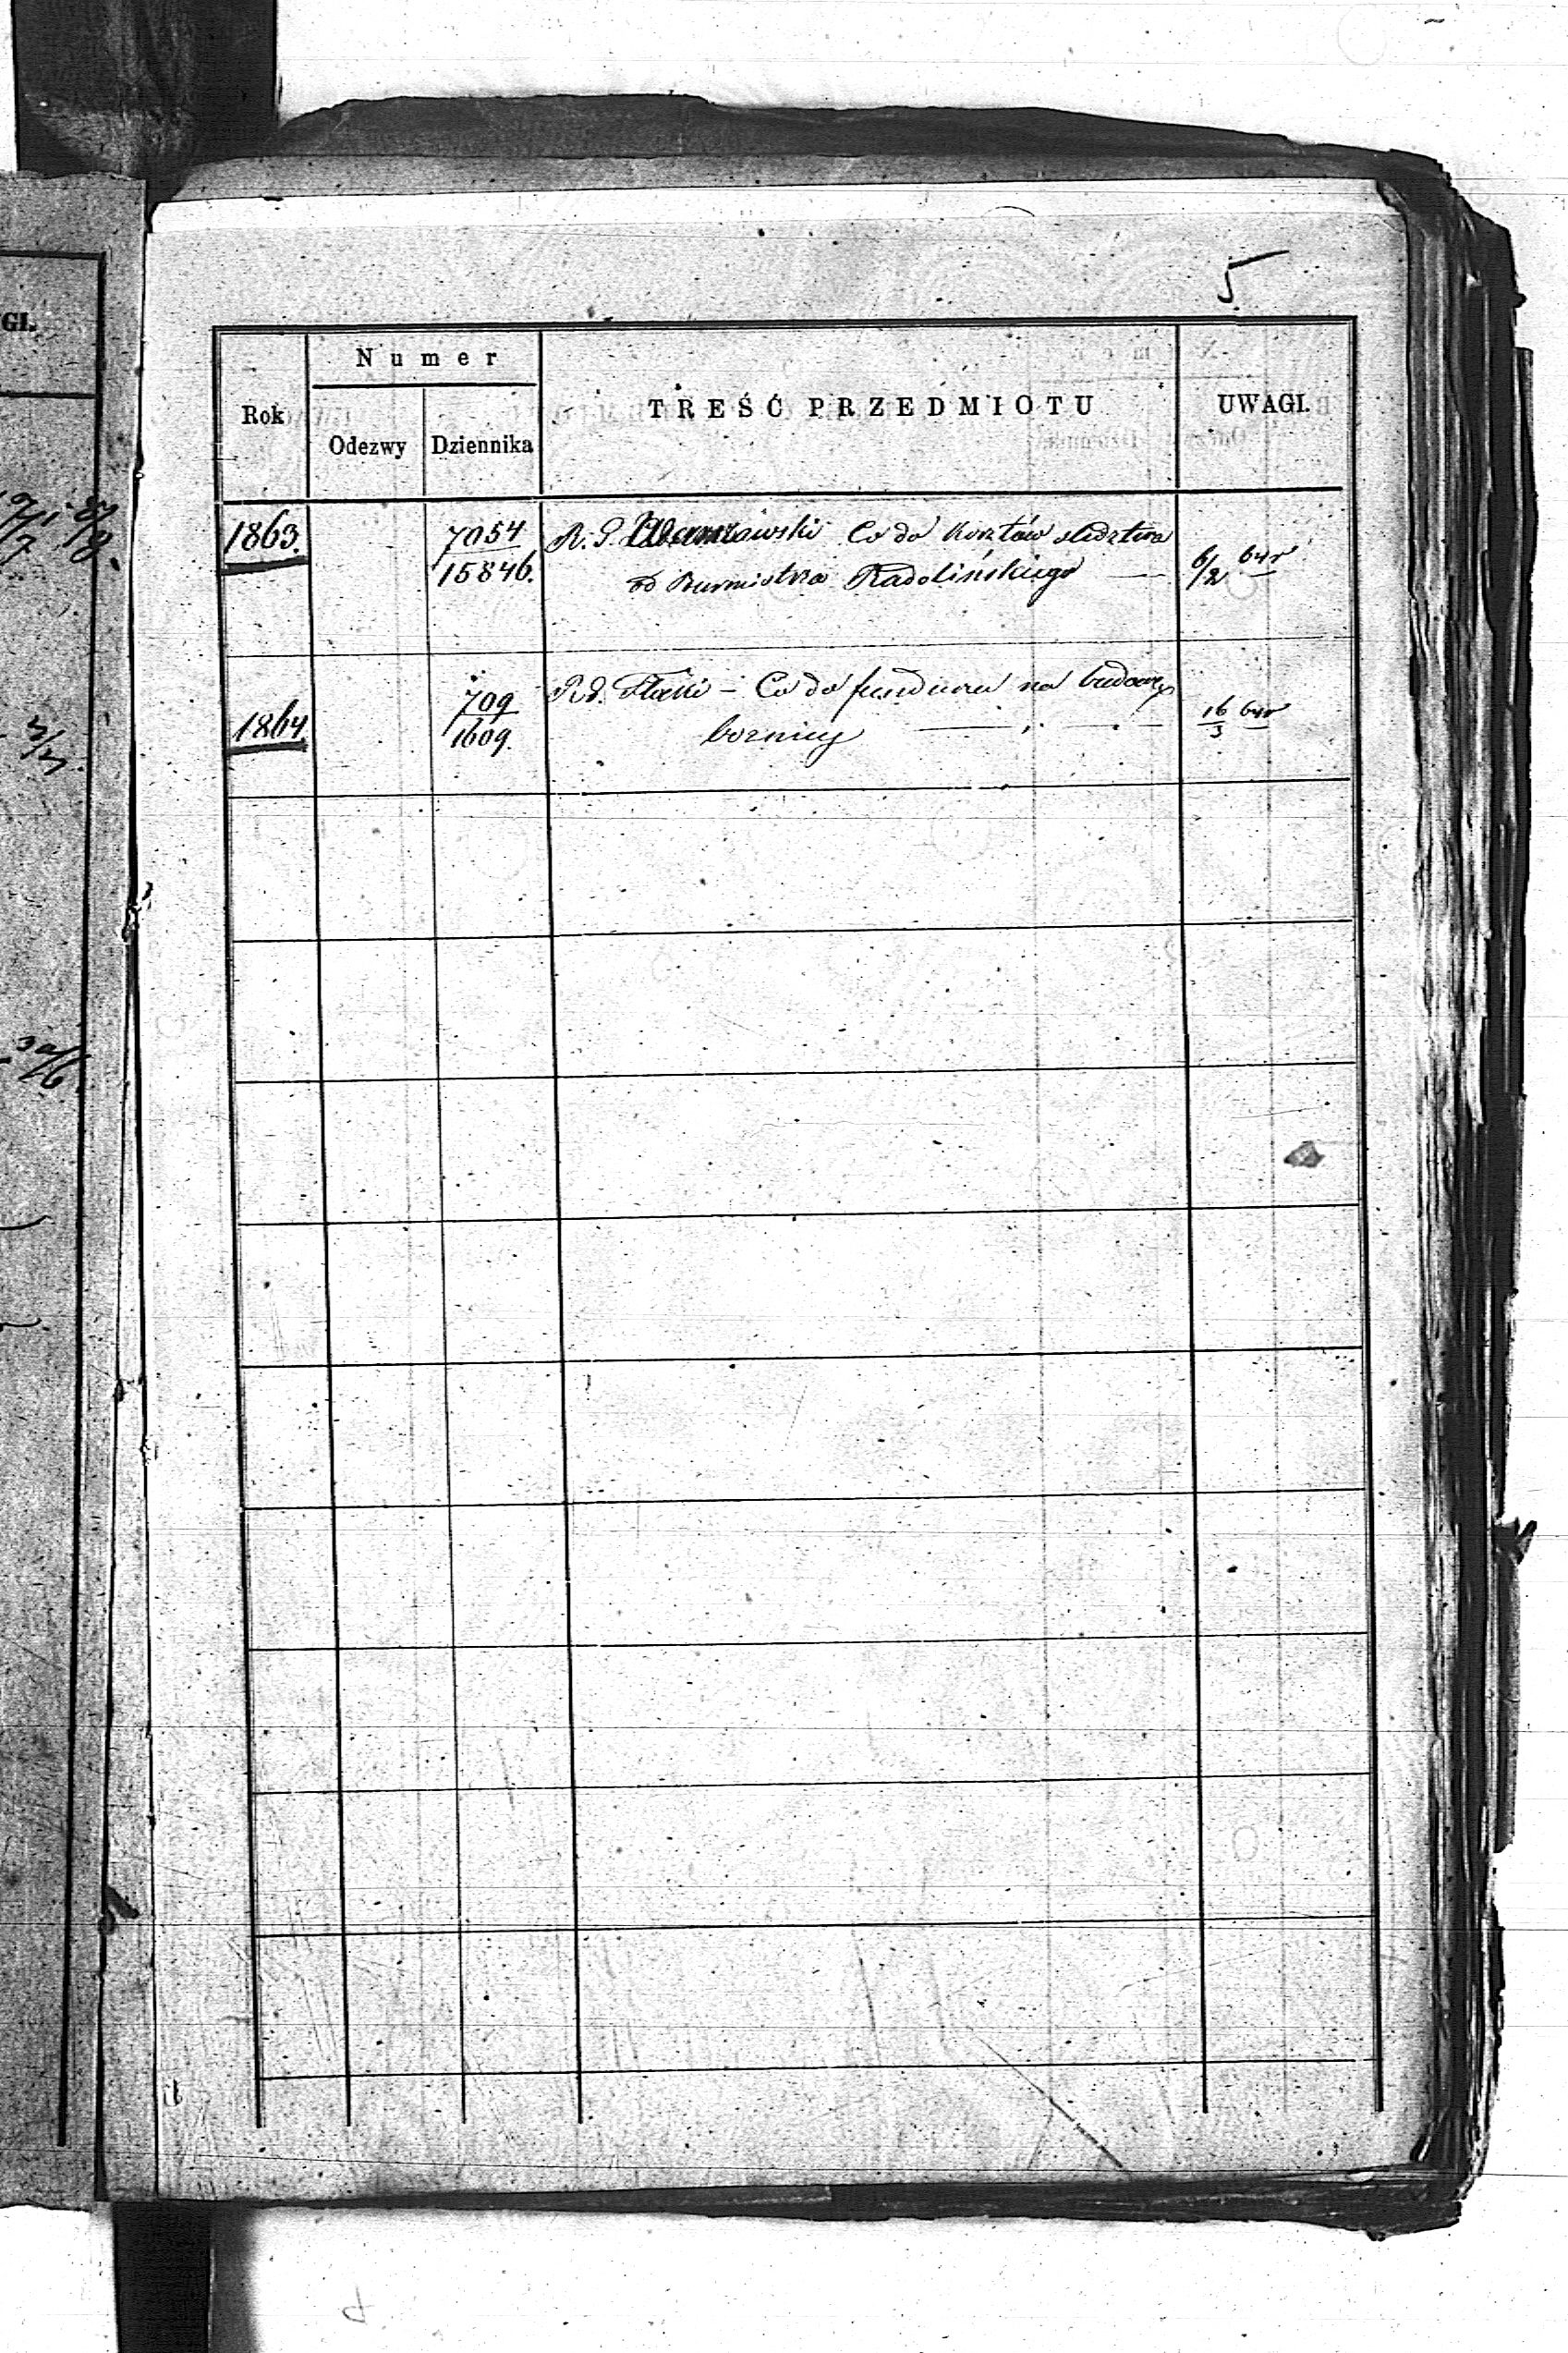 GI.
5
Numer
Rok
Odezwy
Dziennika
TREŚĆ PRZEDMIOTU
UWAGI.
1863.
7054
15846.
R. P. Co do kosztów śledztwa
od Burmistrza Radolińskiego —
6/2 64r
1864.
709
1609.
Rd. — Co do funduszu na budowę
boznicy —
16/3 64r